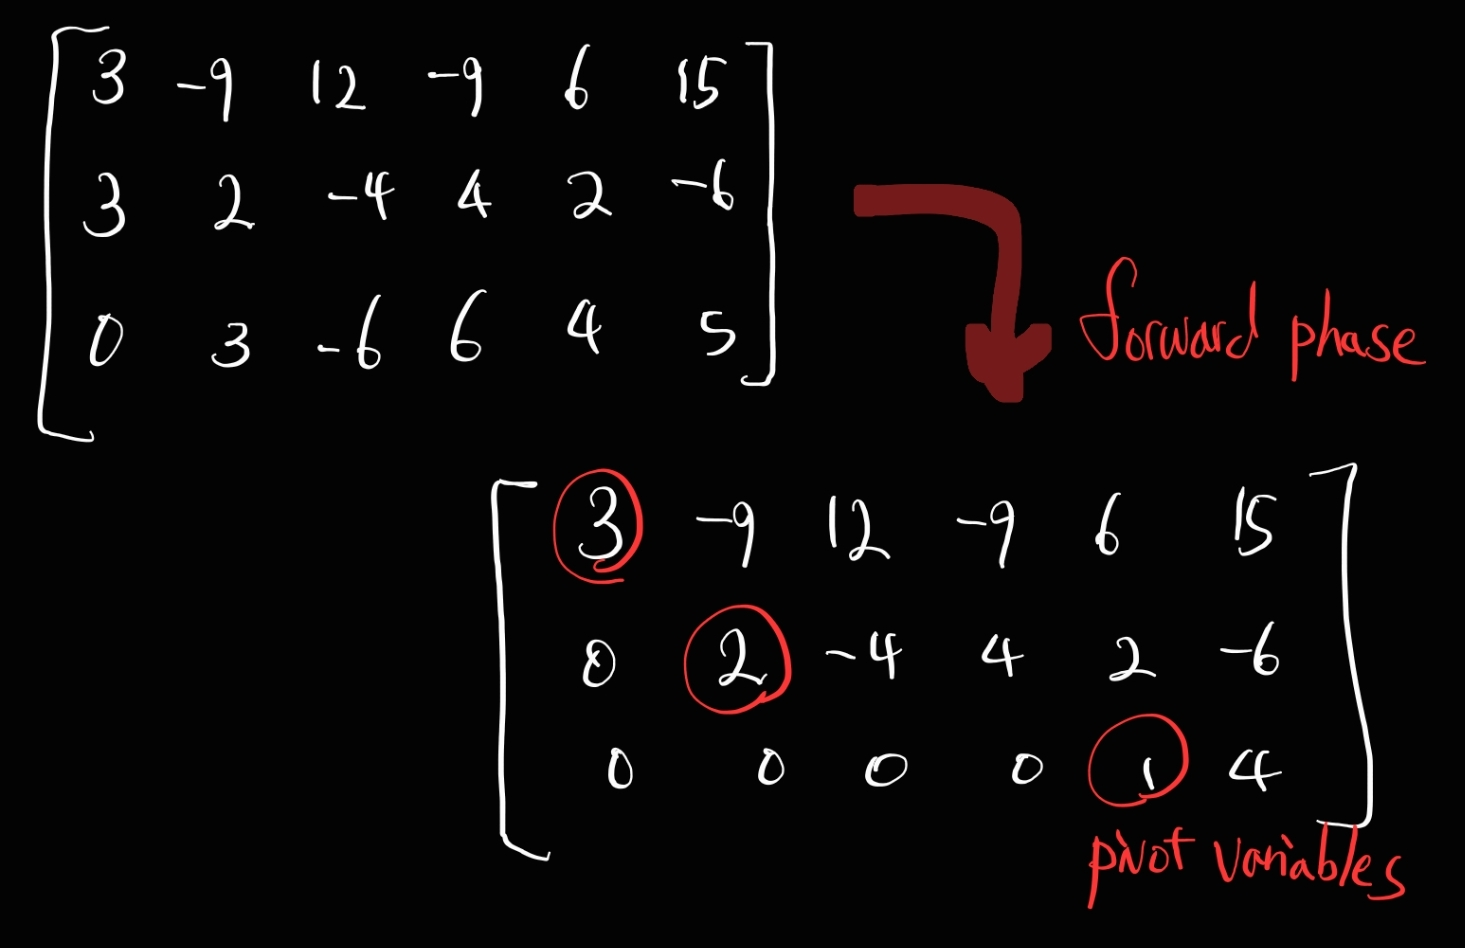 3 -9 12 -9 6 15
3 2 -4 4 2 -6
0 3 -6 6 4 5
forward phase
3 -9 12 -9 6 15
0 2 -4 4 2 -6
0 0 0 0 1 4
pivot variables